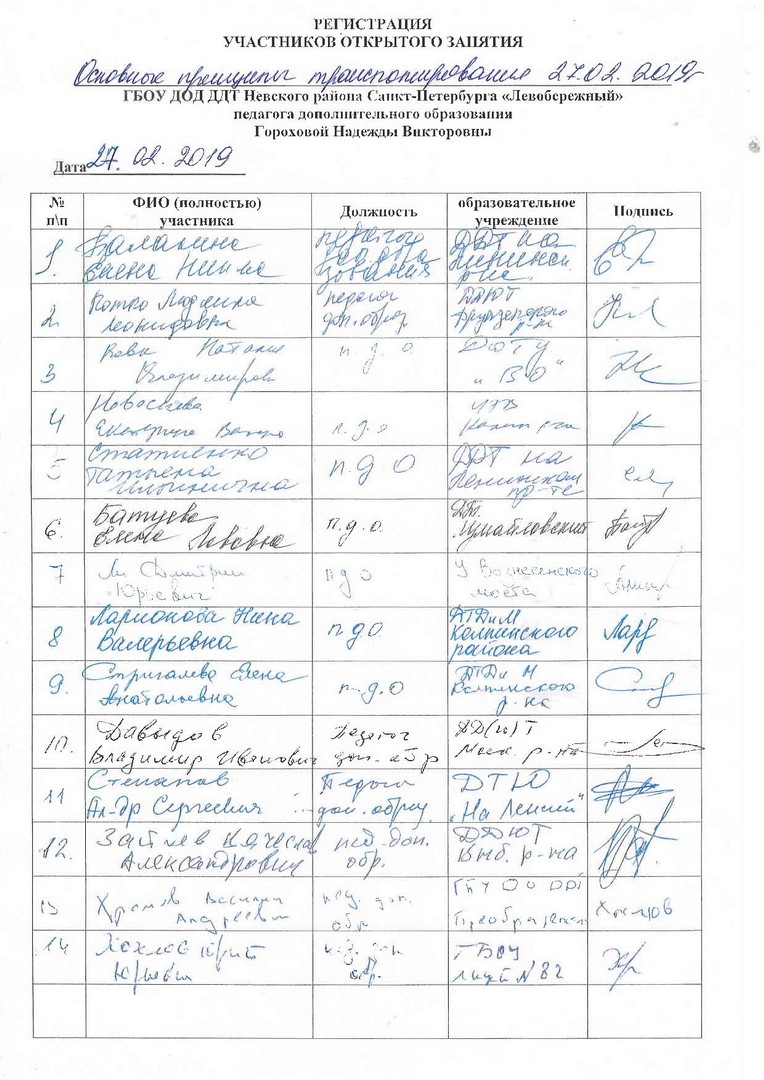 РЕГИСТРАЦИЯ
УЧАСТНИКОВ ОТКРЫТОГО ЗАНЯТИЯ
Основные принципы транспонирования 27.02.2019г
ГБОУ ДОД ДДТ Невского района Санкт-Петербурга «Левобережный»
педагога дополнительного образования
Гороховой Надежды Викторовны
Дата 27. 02. 2019
№ п\п ФИО (полностью) участника Должность образовательное учреждение Подпись
1. Елена
педагог
ДДТ на
2. Людмила
Леонидовна
педагог
доп. образ
ДДЮТ
Фрунзенского
р-на
3 Наталия
Владимировна
п. д. о.
"В О"
4
Екатерина
п. д. о
5 Статиенко
Татьяна
Ильинична
п. д о
ДДТ на
Ленинском
пр-те
6. Батуева
Елена Львовна
п. д. о.
Измайловский
7 Ли Дмитрий
Юрьевич
п д о
У Вознесенского
моста
8 Ларионова Нина
Валерьевна
п. д о.
ДТДиМ
Колпинского
района
9. Спригалева Елена
Анатольевна
п. д. о
ДТДиМ
Колпинского
р-на
10. Давыдов
Владимир Иванович
Педагог
доп. обр
ДД(ю)Т
Моск. р-на
11 Степанов
Ал-др Сергеевич
Педагог
доп. образ.
ДТЮ
"На Ленской"
12. Зайцев Вячеслав
Александрович
пед. доп.
обр.
ДДЮТ
Выб. р-на
13 Храмов Василий
Андреевич
пед. доп.
обр
14
Юрий
Юрьевич
обр.
ГБОУ
лицей N 82